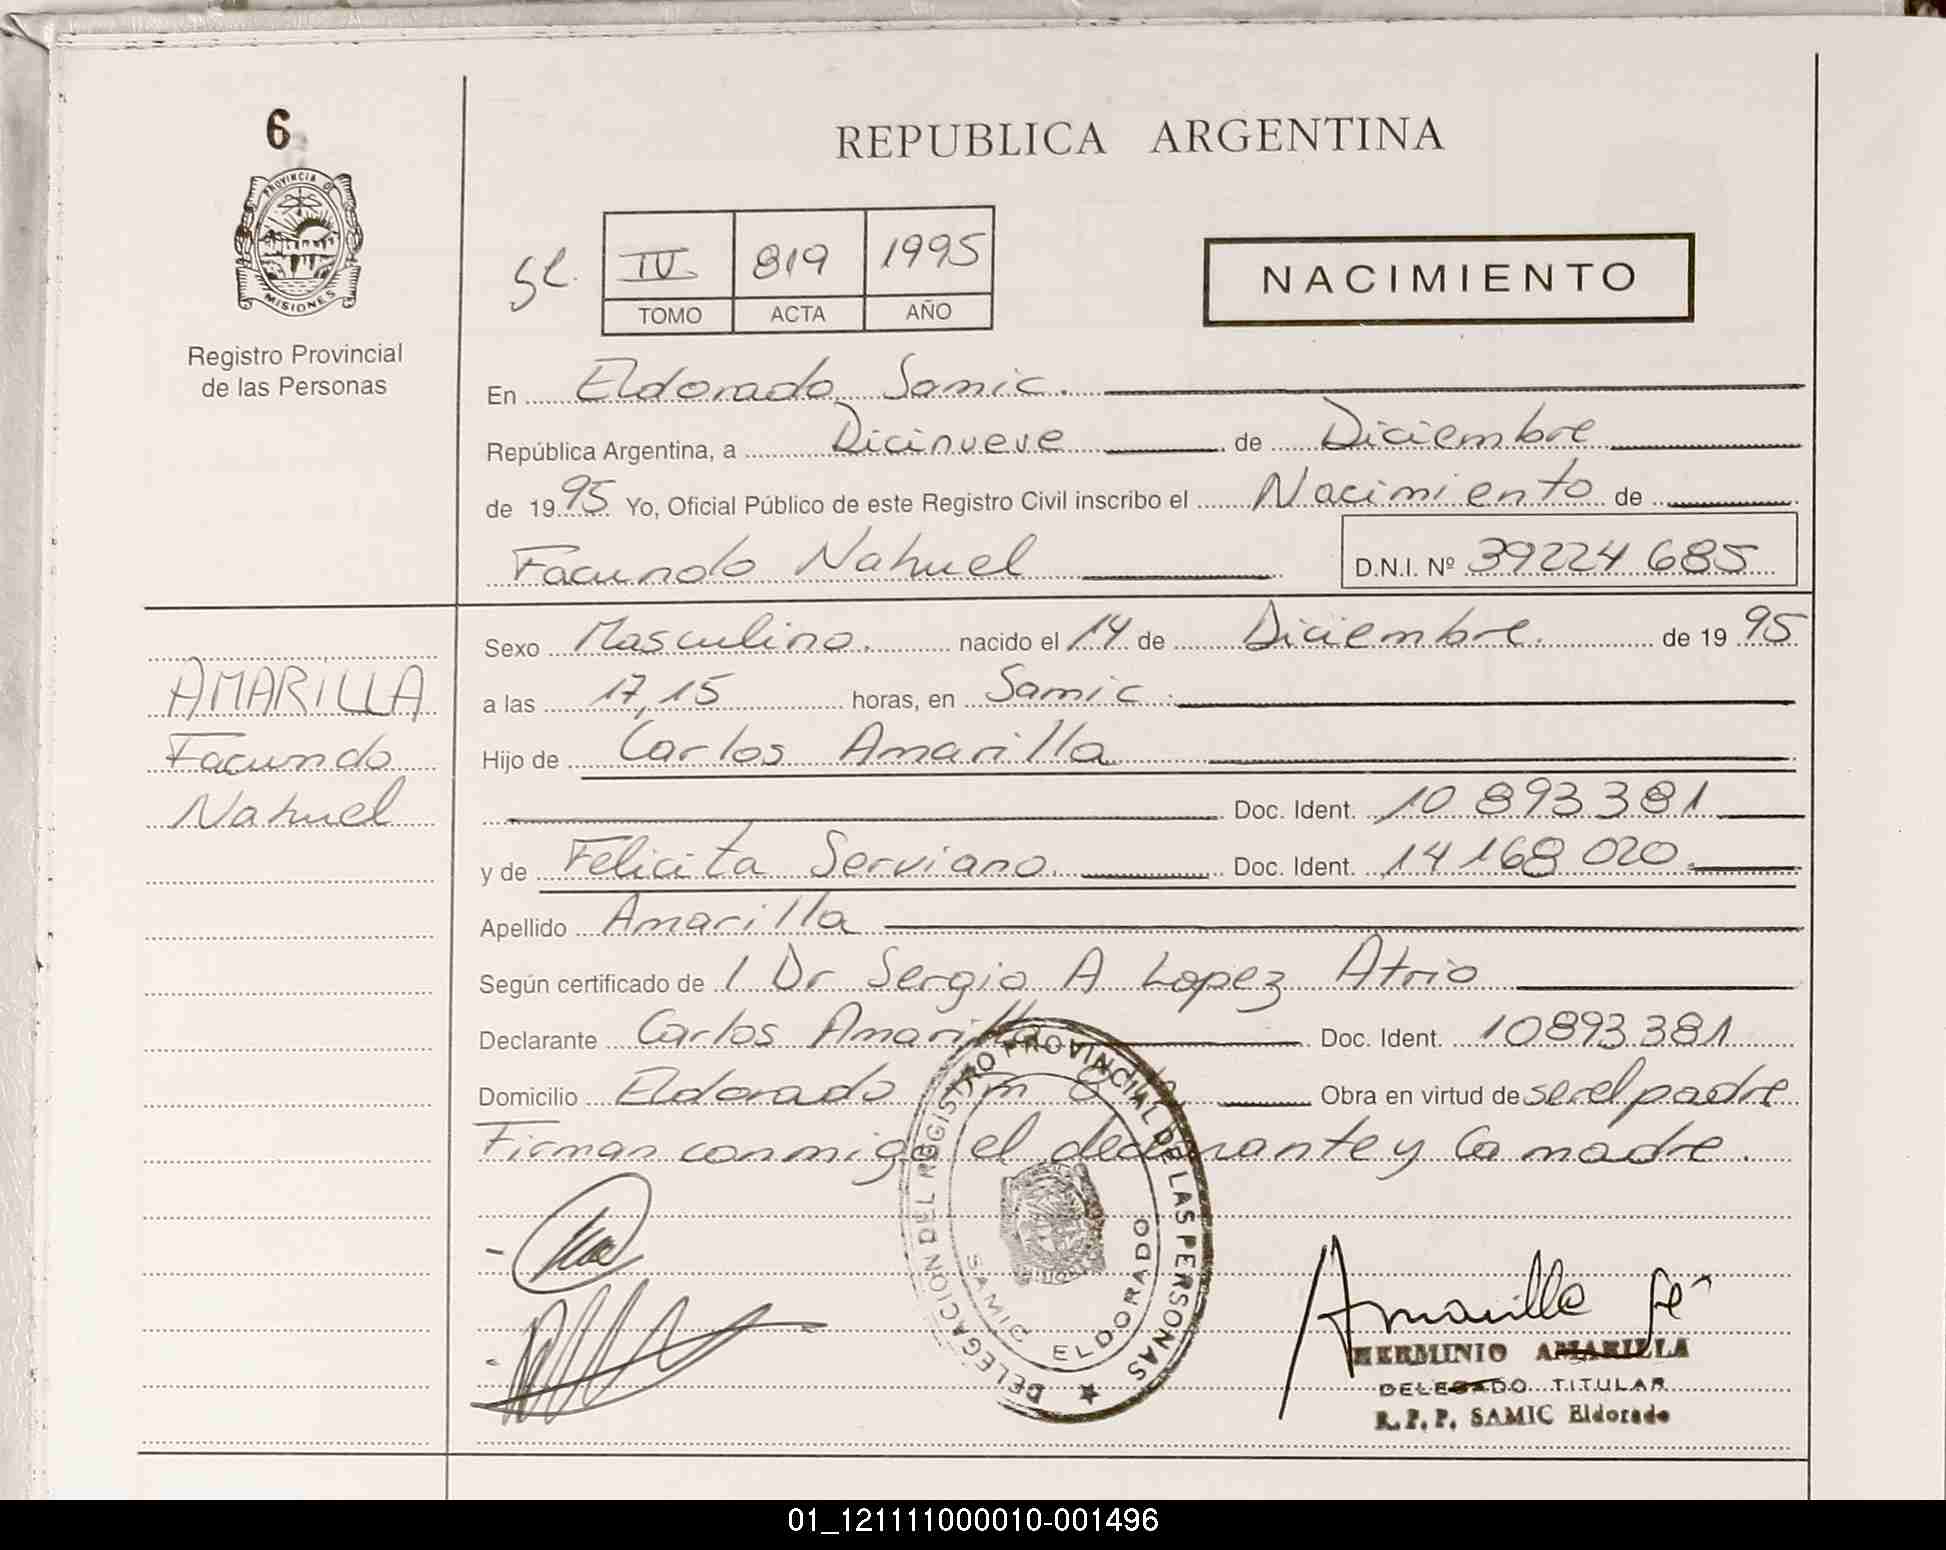 6
REPUBLICA ARGENTINA
PROVINCIA DE
MISIONES
Registro Provincial
de las Personas
IV 819 1995
TOMO ACTA AÑO
NACIMIENTO
En Eldorado Samic.
República Argentina, a Dicinueve de Diciembre
de 1995 Yo, Oficial Público de este Registro Civil inscribo el Nacimiento de
Facundo Nahuel D.N.I. Nº 39224685
AMARILLA
Facundo
Nahuel
Sexo Masculino. nacido el 14 de Diciembre. de 1995
a las 17,15 horas, en Samic.
Hijo de Carlos Amarilla
Doc. Ident. 10 893 381
y de Felicita Serviano. Doc. Ident. 14 168 020.
Apellido Amarilla
Según certificado de l Dr Sergio A Lopez Atrio
Declarante Carlos Amarilla Doc. Ident. 10893381
Domicilio Eldorado Km 8 Obra en virtud de ser el padre
Firman conmigo el declarante y la madre.
DELEGACION DEL REGISTRO PROVINCIAL DE LAS PERSONAS
SAMIC ELDORADO
Amarilla
HERMINIO AMARILLA
DELEGADO TITULAR
R.P.P. SAMIC Eldorado
01_121111000010-001496